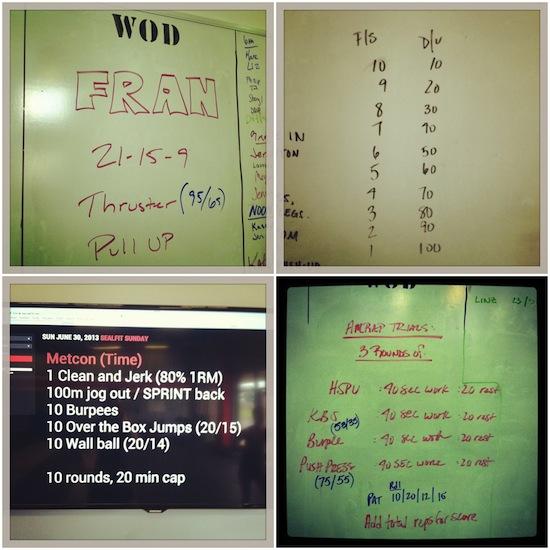 WOD
FRAN
21-15-9
Thruster (95/65)
Pull UP
F/S D/U
10 10
9 20
8 30
7 40
6 50
5 60
4 70
3 80
2 90
1 100
IN
ON
EGS.
SUN JUNE 30, 2013 SEALFIT SUNDAY
Metcon (Time)
1 Clean and Jerk (80% 1RM)
100m jog out / SPRINT back
10 Burpees
10 Over the Box Jumps (20/15)
10 Wall ball (20/14)
10 rounds, 20 min cap
WOD
AMRAP TRIALS:
3 Rounds of:
HSPU :40 sec work :20 rest
KBS :40 sec work :20 rest
(53/35)
Burpee :40 sec work :20 rest
PUSH PRESS :40 SEC WORK :20 rest
(75/55)
PAT 10/20/12/16
Add total reps for score